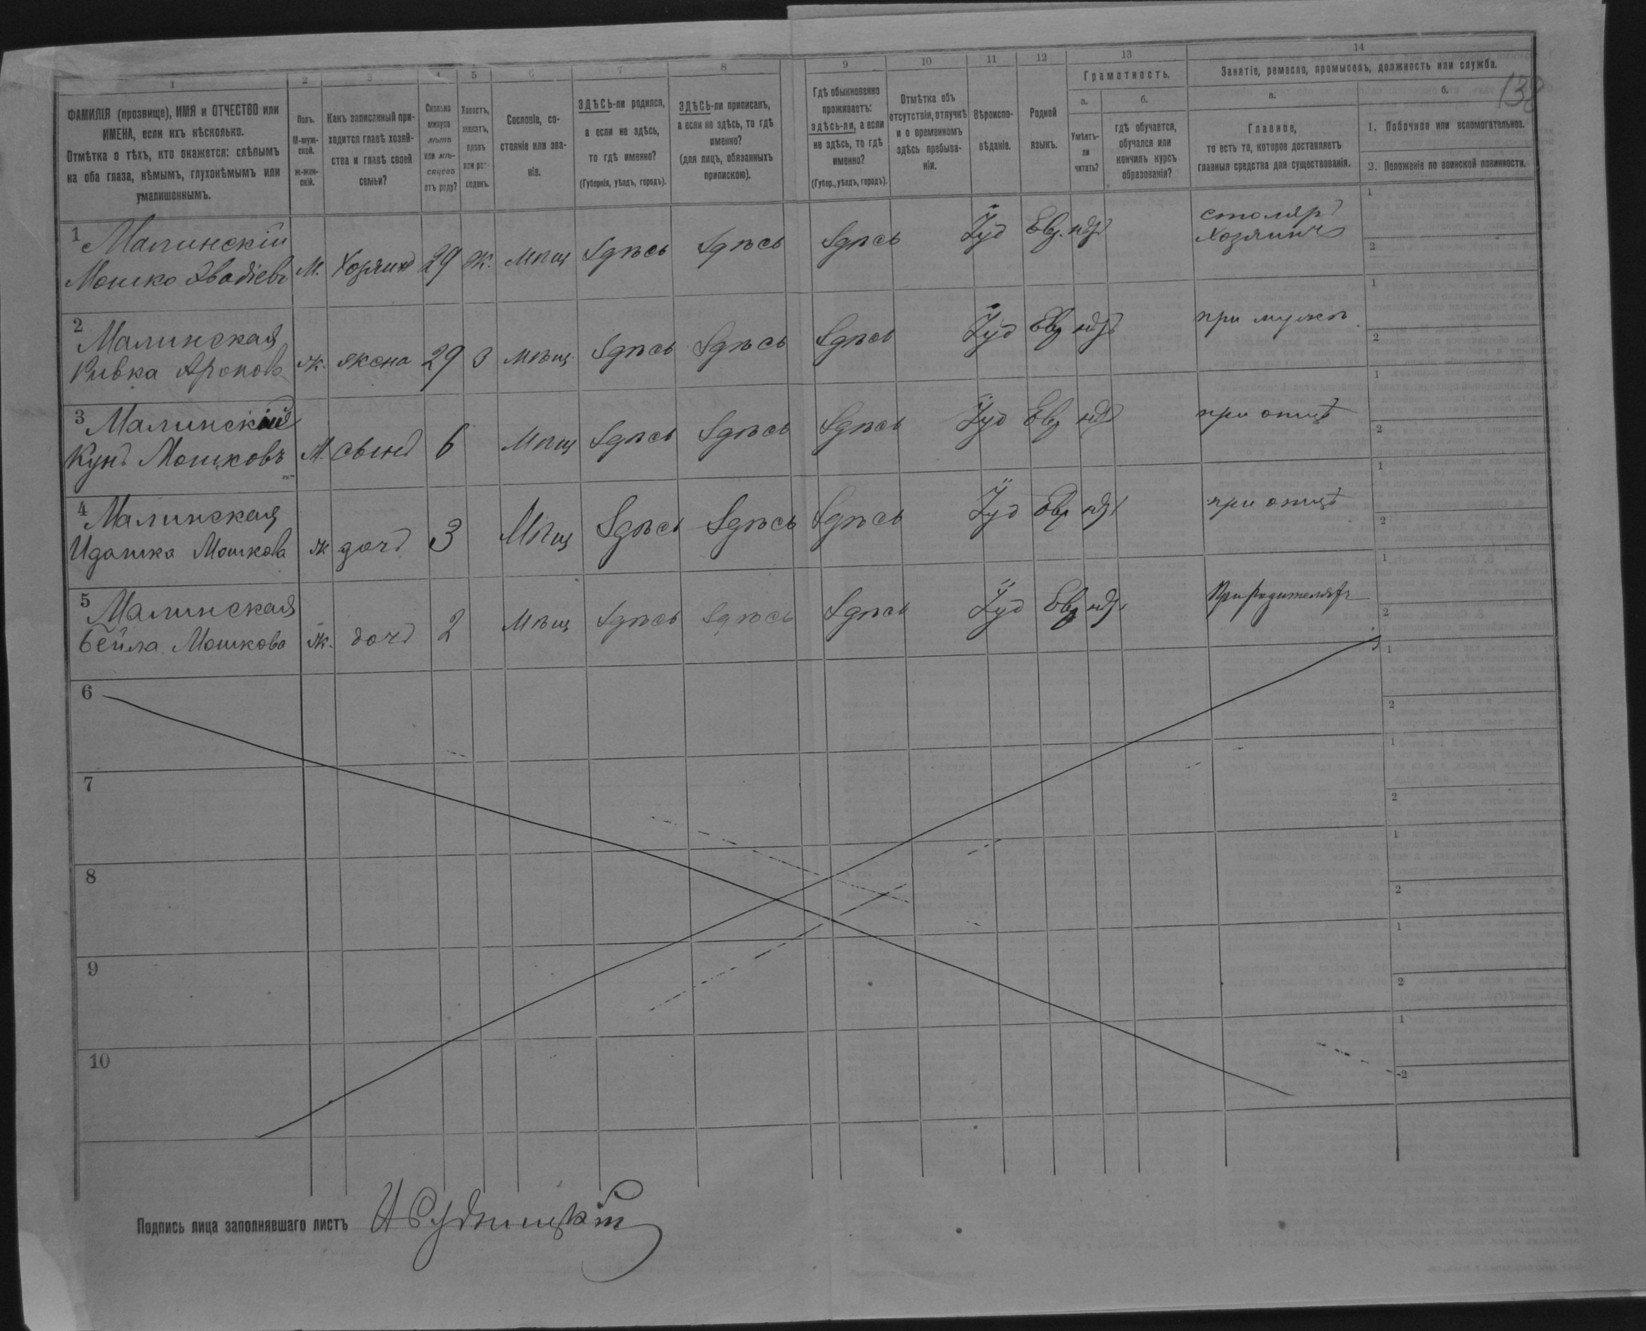 138
1 2 3 4 5 6 7 8 9 10 11 12 13 14
ФАМИЛІЯ (прозвище), ИМЯ и ОТЧЕСТВО или
ИМЕНА, если ихъ нѣсколько.
Отмѣтка о тѣхъ, кто окажется: слѣпымъ
на оба глаза, нѣмымъ, глухонѣмымъ или
умалишеннымъ.
Полъ.
М-муж-
ской.
ж-жен-
скій.
Какъ записанный при-
ходится главѣ хозяй-
ства и главѣ своей
семьи?
Сколько
минуло
лѣтъ
или мѣ-
сяцевъ
отъ роду?
Холостъ,
женатъ,
вдовъ
или раз-
веденъ.
Сословіе, со-
стояніе или зва-
ніе.
ЗДѢСЬ-ли родился,
а если не здѣсь,
то гдѣ именно?
(Губернія, уѣздъ, городъ).
ЗДѢСЬ-ли приписанъ,
а если не здѣсь, то гдѣ
именно?
(для лицъ, обязанныхъ
припискою).
Гдѣ обыкновенно
проживаетъ:
здѣсь-ли, а если
не здѣсь, то гдѣ
именно?
(Губер., уѣздъ, городъ).
Отмѣтка объ
отсутствіи, отлучкѣ
и о временномъ
здѣсь пребыва-
ніи.
Вѣроиспо-
вѣданіе.
Родной
языкъ.
Грамотность.
а. б.
Умѣетъ-
ли
читать?
гдѣ обучается,
обучался или
кончилъ курсъ
образованія?
Занятіе, ремесло, промыселъ, должность или служба.
а. б.
Главное,
то есть то, которое доставляетъ
главныя средства для существованія.
1. Побочное или вспомогательное.
2. Положеніе по воинской повинности.
1 Малинскій столяръ 1
Мошко М. Хозяинъ 29 Ж. мѣщ Здѣсь Здѣсь Здѣсь Іуд Евр. Хозяинъ 2
2 Малинская при мужѣ 1
Ривка Аронова ж. жена 29 З мѣщ Здѣсь Здѣсь Здѣсь Іуд Евр 2
3 Малинскій при отцѣ 1
Мошковъ М. сынъ 6 мѣщ Здѣсь Здѣсь Здѣсь Іуд Евр 2
4 Малинская при отцѣ 1
Идашка Мошкова ж дочь 3 Мѣщ Здѣсь Здѣсь Здѣсь Іуд Евр 2
5 Малинская При родителяхъ 1
Бейла Мошкова Ж. дочь 2 мѣщ Здѣсь Здѣсь Здѣсь Іуд Евр 2
6 1
2
7 1
2
8 1
2
9 1
2
10 1
2
Подпись лица заполнявшаго листъ